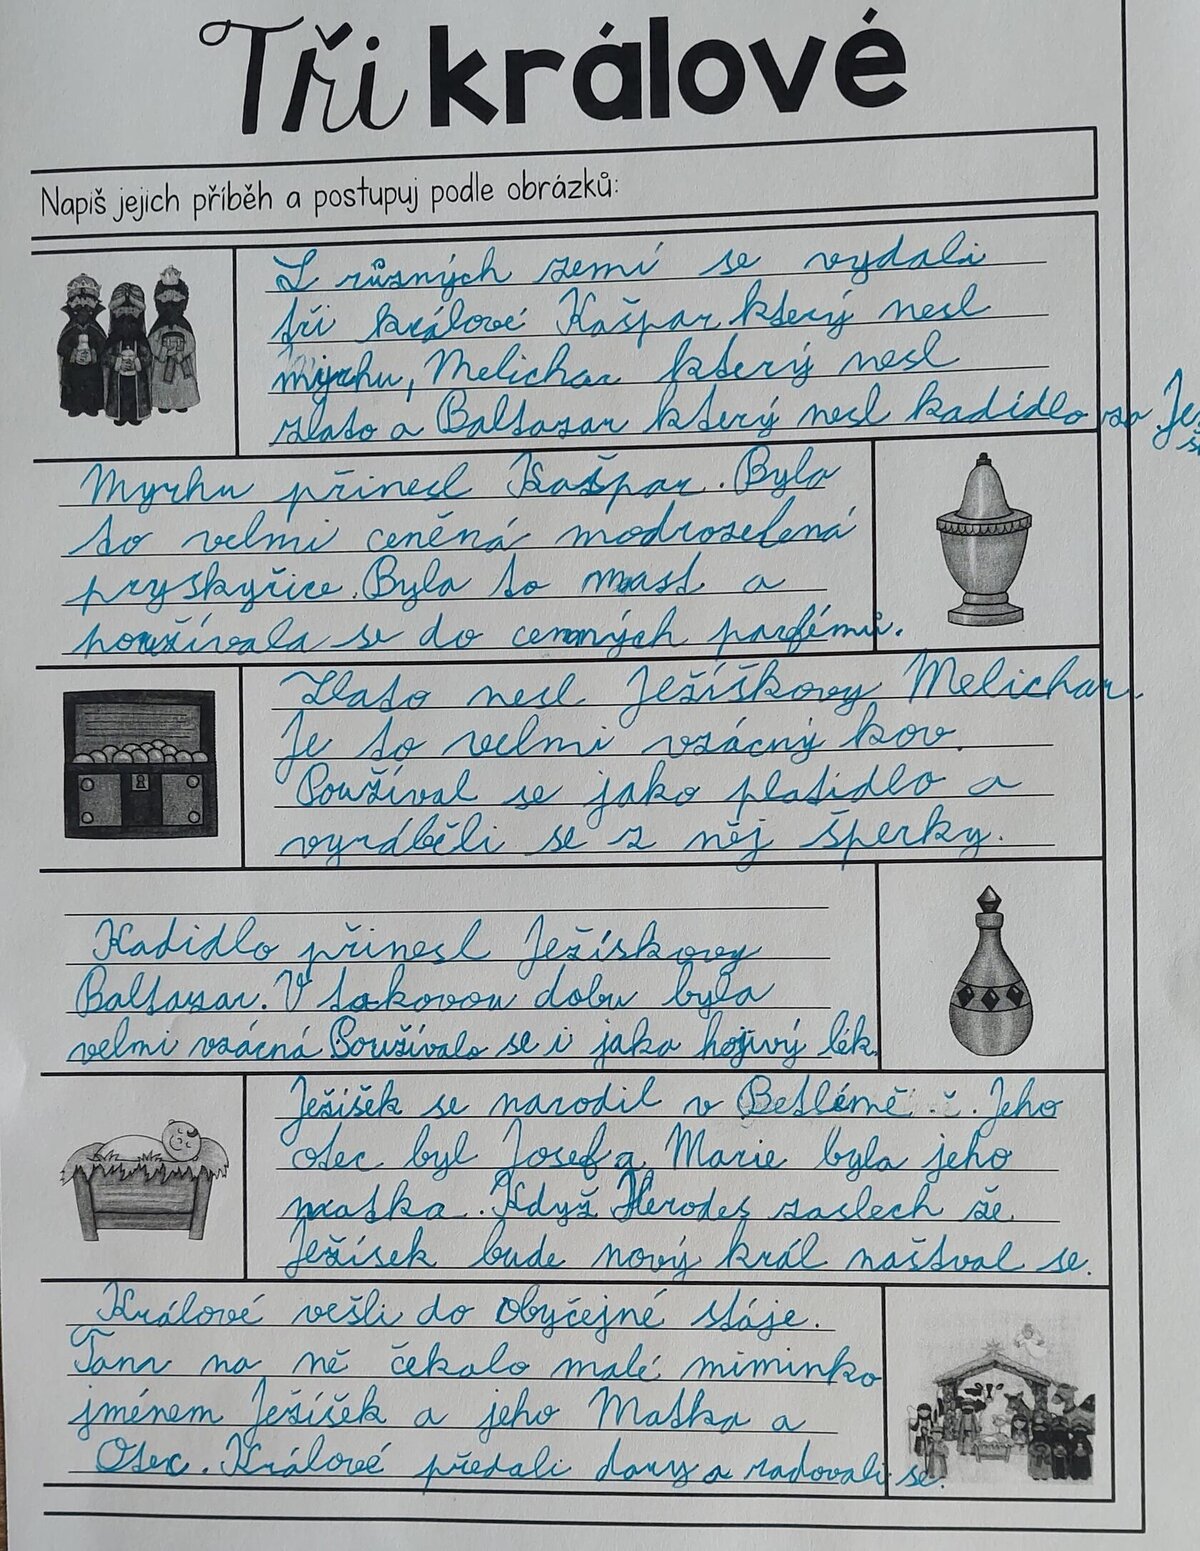 Tři králové
Napiš jejich příběh a postupuj podle obrázků:
Z různých zemí se vydali
tři králové Kašpar který nesl
myrhu, Melichar který nesl
zlato a Baltazar který nesl kadidlo za
Myrhu přinesl Kašpar. Byla
to velmi ceněná modrozelená
pryskyřice. Byla to mast a
používala se do cenných parfémů.
Zlato nesl Ježíškovy Melichar.
Je to velmi vzácný kov.
Používal se jako platidlo a
vyráběli se z něj šperky.
Kadidlo přinesl Ježískovy
Baltazar. V takovou dobu byla
velmi vzácná Používalo se i jako hojivý lék
Ježíšek se narodil v Betlémě. Jeho
otec byl Josef a Marie byla jeho
matka. Když Herodes zaslech že
Ježísek bude nový král naštval se.
Králové vešli do obyčejné stáje.
Tam na ně čekalo malé miminko
jménem Ježíšek a jeho Matka a
Otec. Králové předali dary a radovali se.